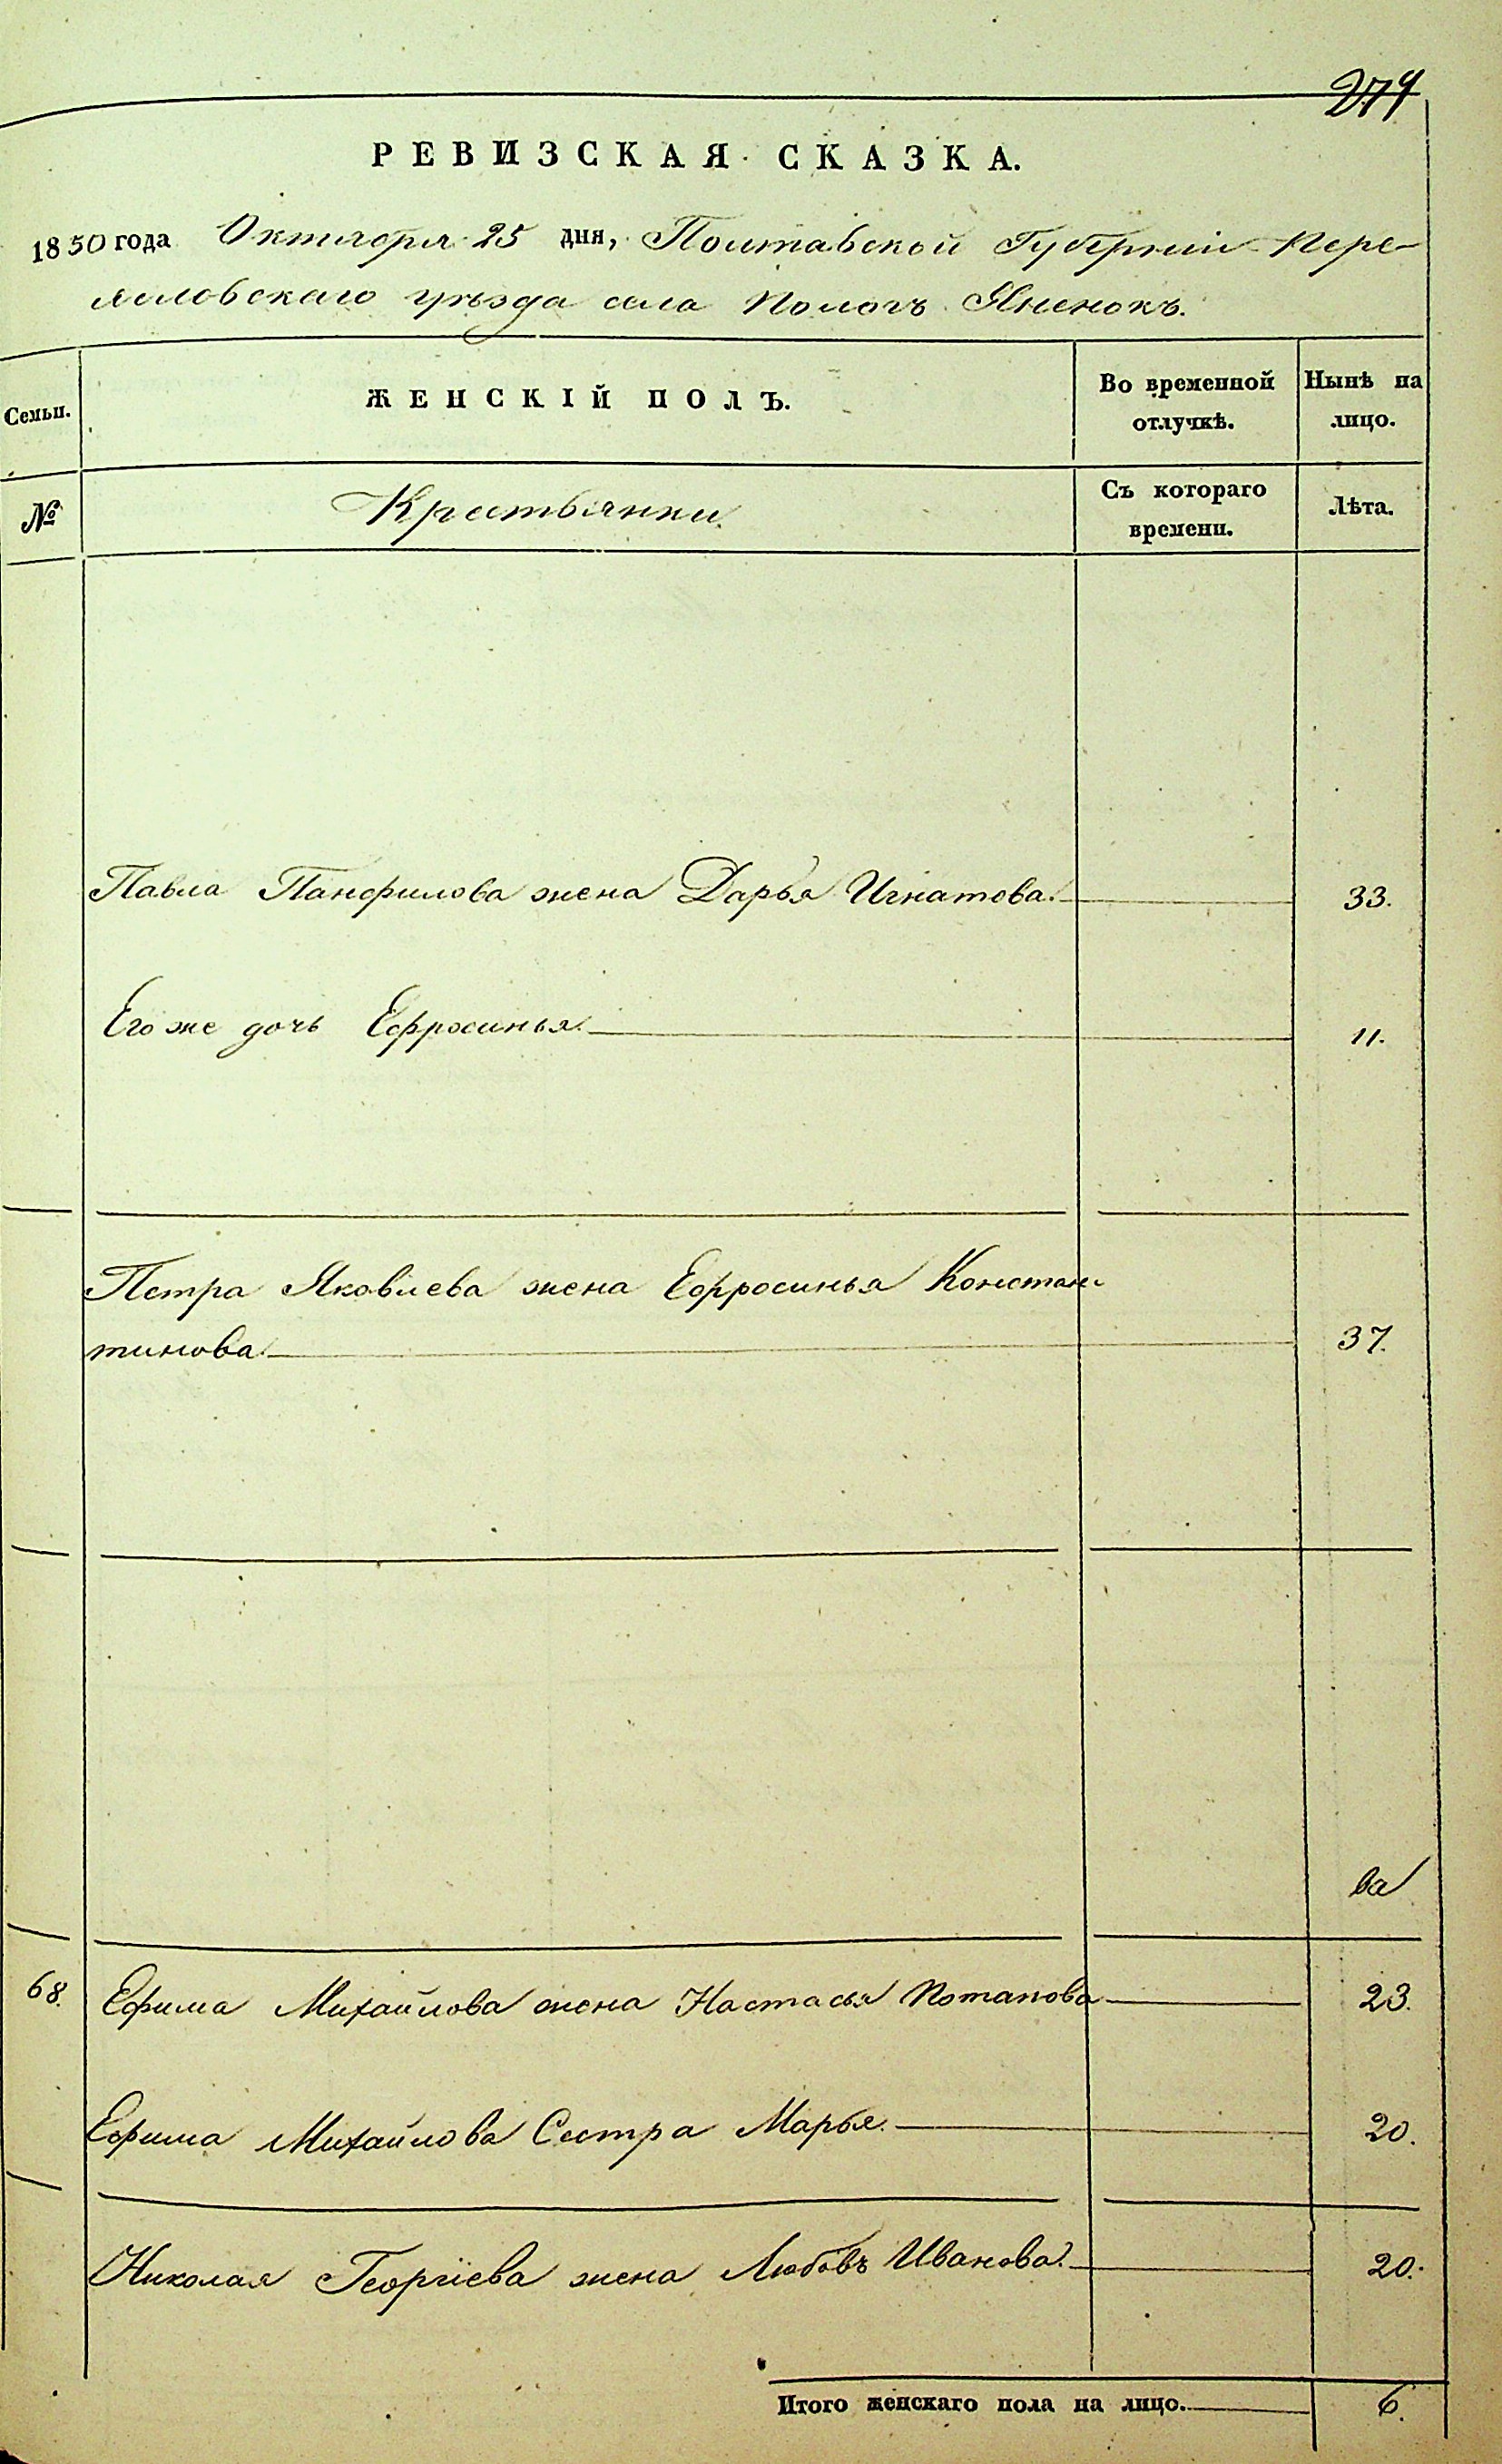 274
РЕВИЗСКАЯ СКАЗКА.
1850 года Октября 25 дня, Полтавской Губерніи Пере-
яславскаго уѣзда села Пологъ Яненокъ.
Семьи.
ЖЕНСКІЙ ПОЛЪ.
Во временной
отлучкѣ.
Нынѣ на
лицо.
№
Крестьянки.
Съ котораго
времени.
Лѣта.
Павла Панфилова жена Дарья Игнатова. 33.
Его же дочь Ефросинья. 11.
Петра Яковлева жена Ефросинья Констан-
тинова. 37.
ва
68. Ефима Михайлова жена Настасья Потапова 23.
Ефима Михайлова Сестра Марья. 20.
Николая Георгіева жена Любовь Иванова. 20.
Итого женскаго пола на лицо. 6.